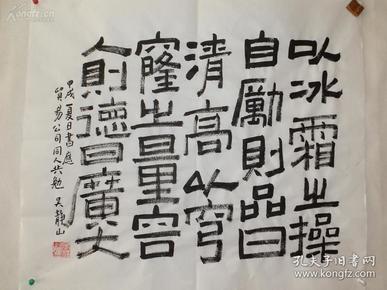 以冰霜之操
自勵則品日
清高以穹
窿之量容
人則德日廣大
甲戌夏日書應
貿易公司同人共勉 吴静山
孔夫子旧书网